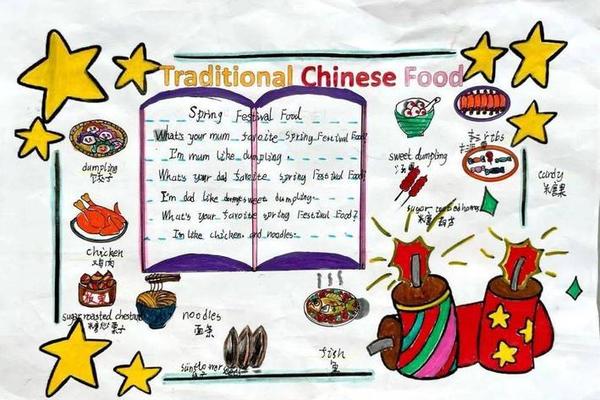 Traditional Chinese Food
Spring Festival Food
Whats your mum favoite Spring Festival Food?
I'm mum like dumpling.
Whats your dad favoite spring Festival Food?
I'm dad like sweet dumpling.
What's your favoite spring Festival Food?
I'm like chicken and noodles.
dumpling
饺子
chicken
鸡肉
sugar roasted chestnut
糖炒栗子
noodles
面条
sunflower
fish
鱼
sweet dumpling
汤圆
sugar
candy
糖果